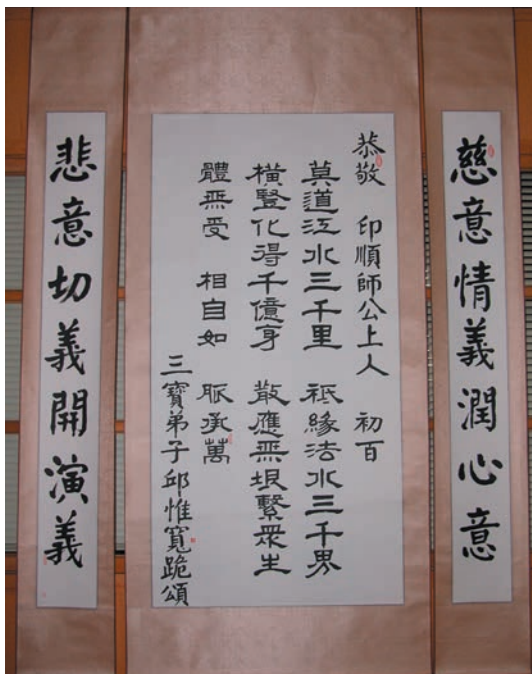 慈意情義潤心意
恭敬 印順師公上人 初百
莫道江水三千里 祇緣法水三千界
橫豎化得千億身 散應無垠繫眾生
體無受 相自如 脈承萬
三寶弟子邱惟寬跪頌
悲意切義開演義